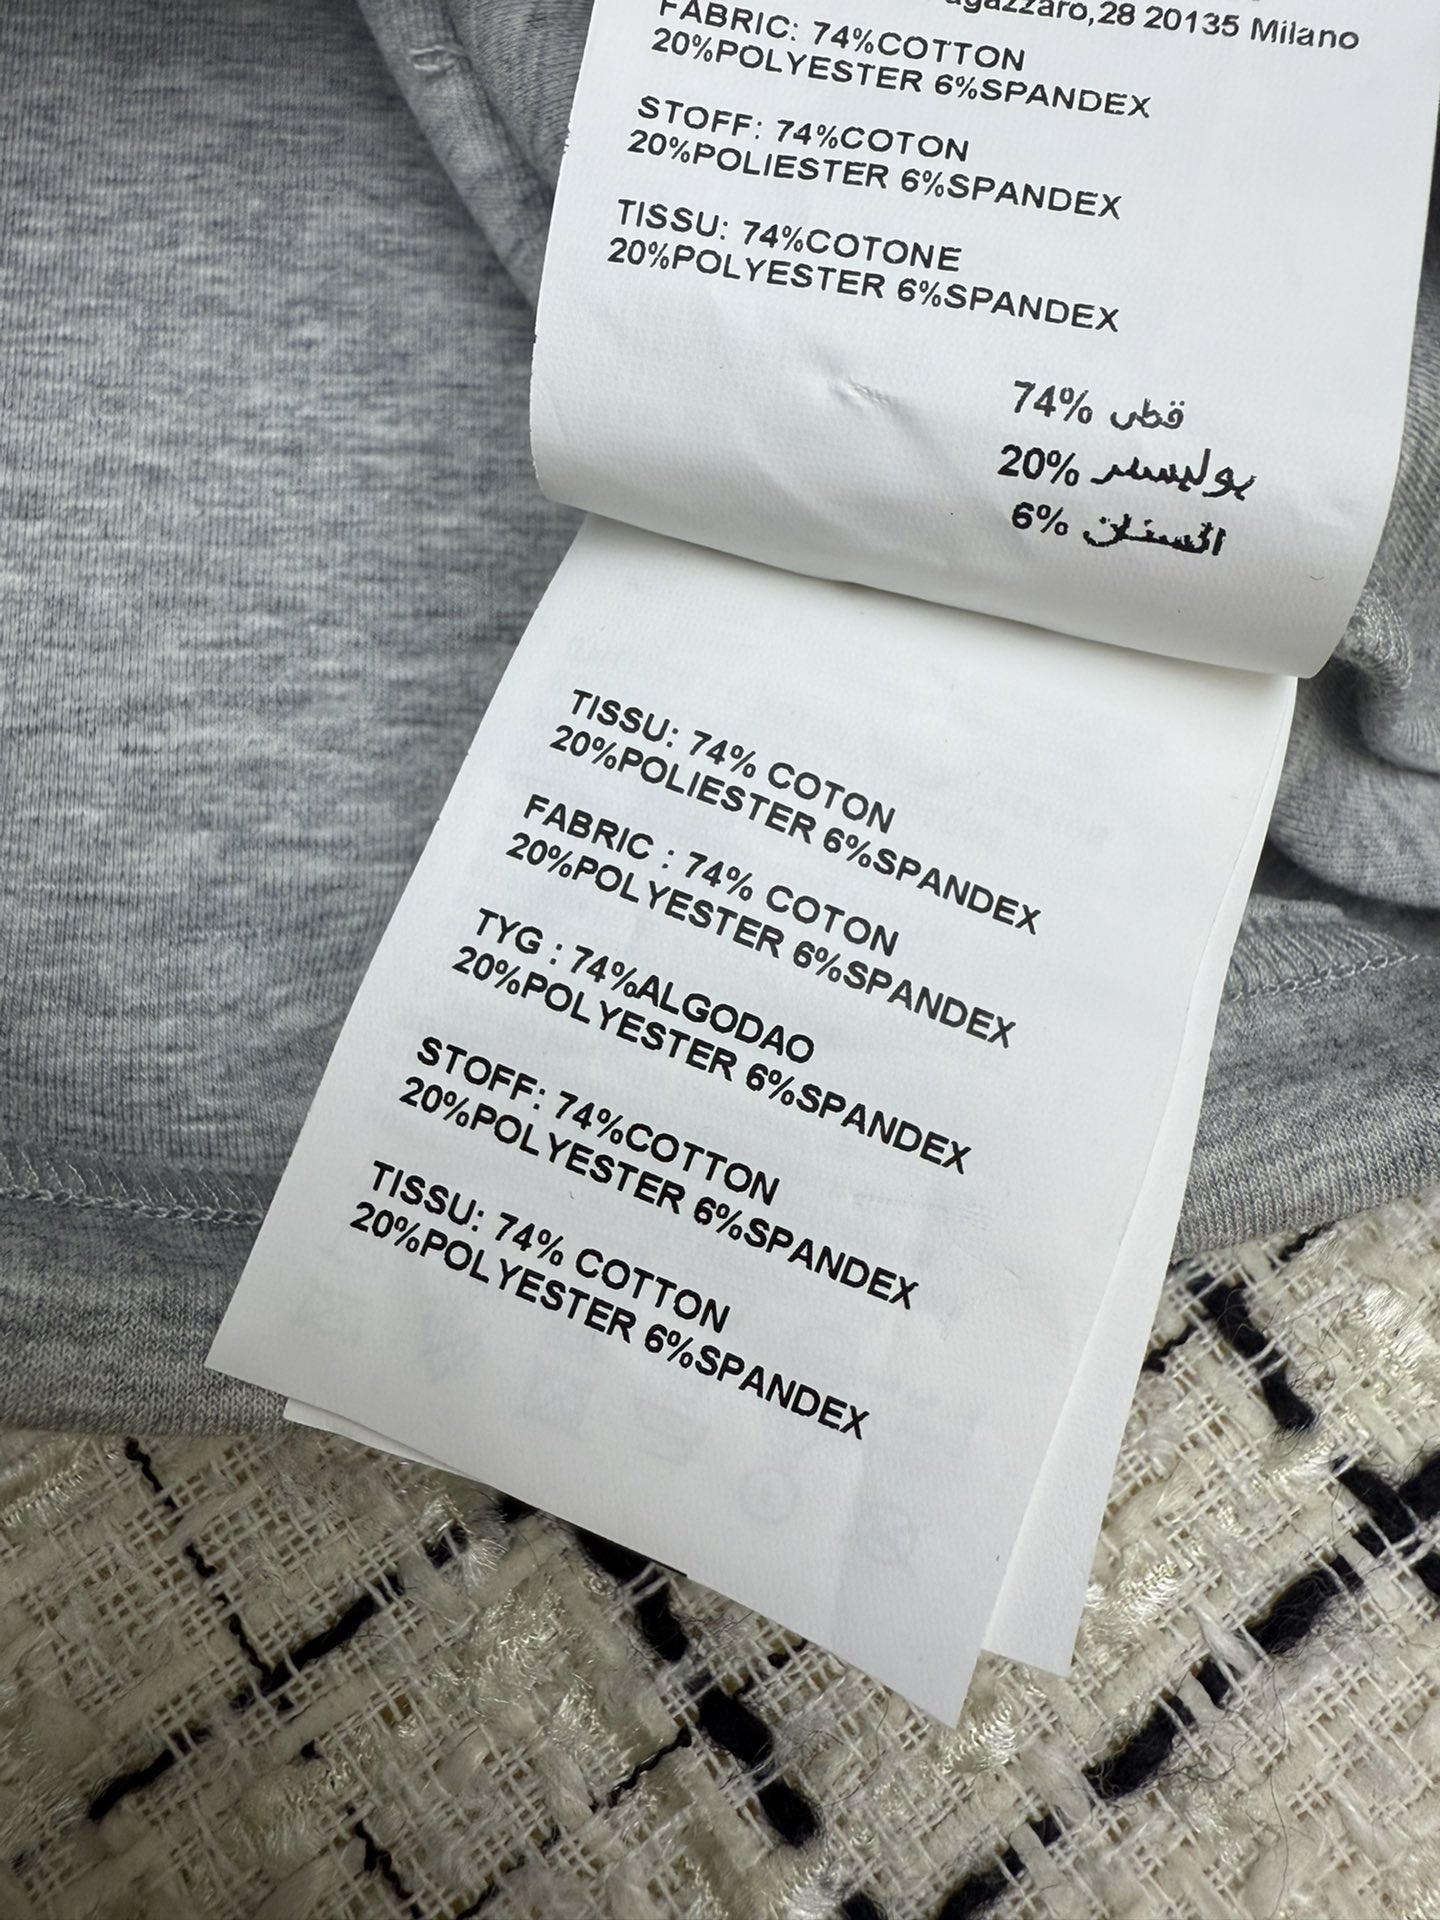 28 20135 Milano
FABRIC: 74%COTTON
20%POLYESTER 6%SPANDEX
STOFF: 74%COTON
20%POLIESTER 6%SPANDEX
TISSU: 74%COTONE
20%POLYESTER 6%SPANDEX
74% قطى
20% بوليستر
6%
TISSU: 74% COTON
20%POLIESTER 6%SPANDEX
FABRIC : 74% COTON
20%POLYESTER 6%SPANDEX
TYG : 74%ALGODAO
20%POLYESTER 6%SPANDEX
STOFF: 74%COTTON
20%POLYESTER 6%SPANDEX
TISSU: 74% COTTON
20%POLYESTER 6%SPANDEX